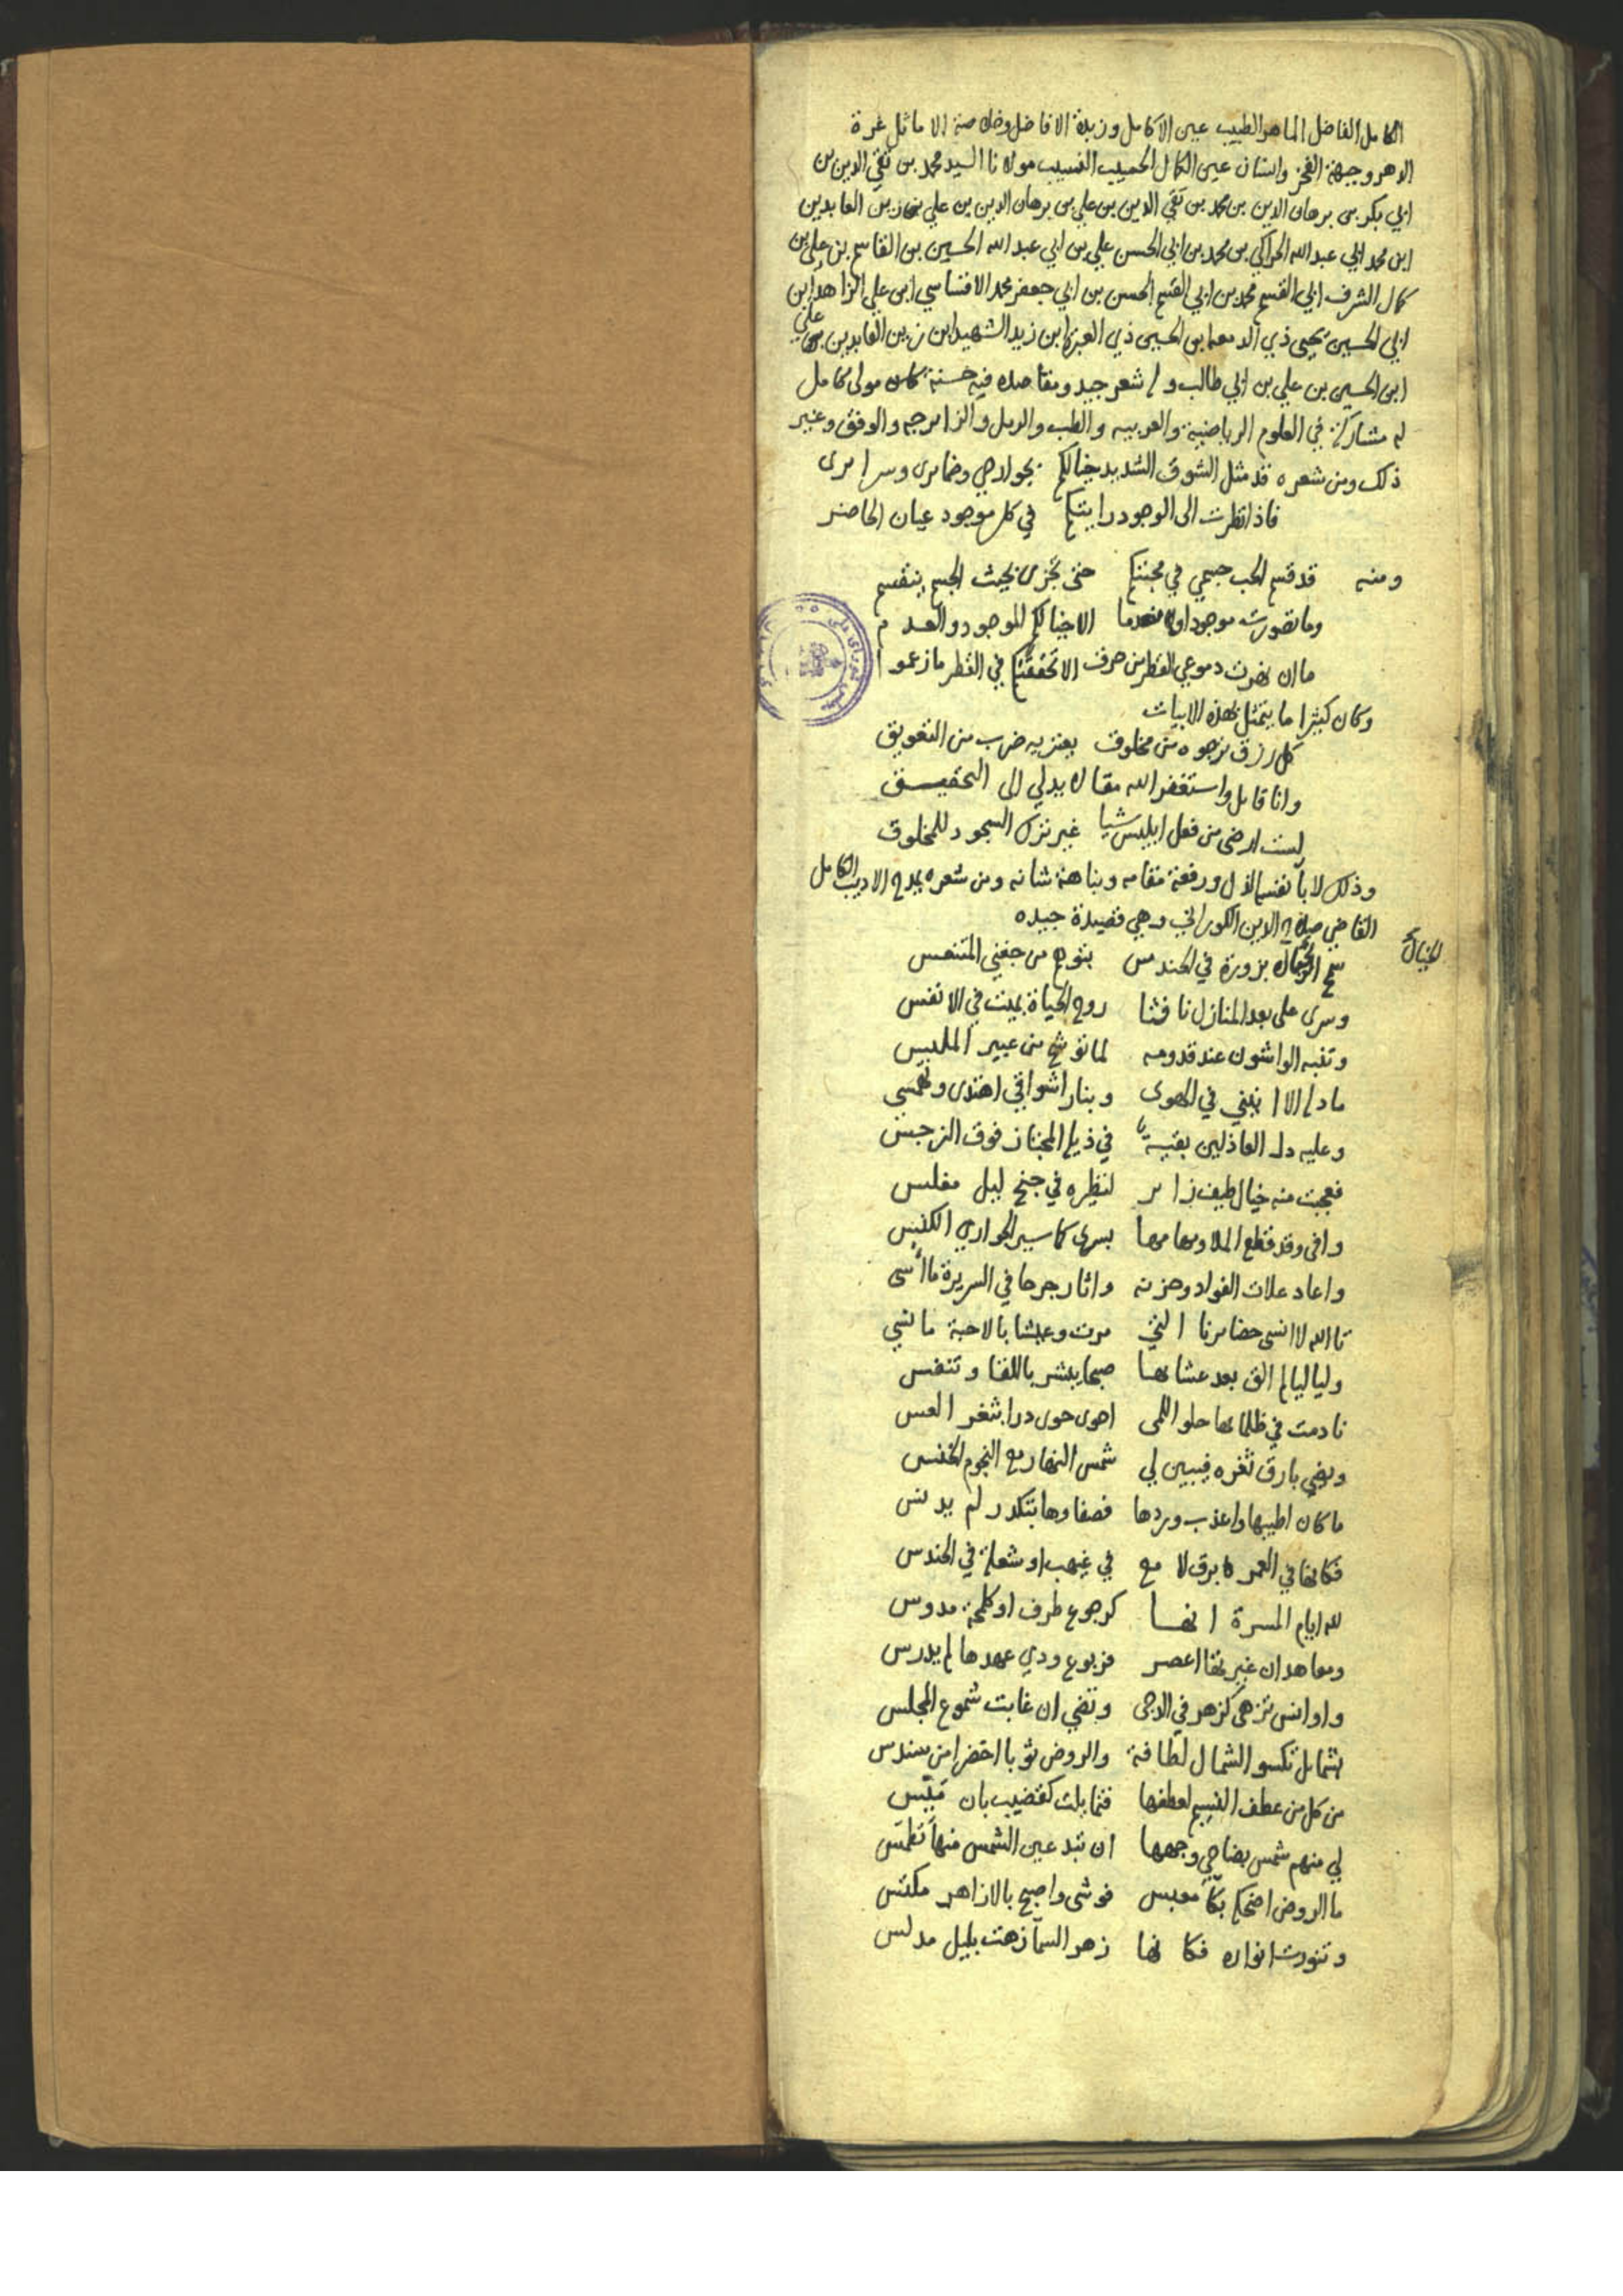 الكامل الفاضل الماهر الطبيب عين الاكامل وزبدة الافاضل وخلاصة الاماثل غرة
الدهر وجبهة الفخر وانسان عين الكمال الحسيب النسيب مولانا السيد محمد بن تقي الدين بن
ابي بكر بن برهان الدين بن محمد بن تقي الدين بن علي بن برهان الدين بن علي بن زين العابدين
ابن محمد ابي عبد الله الحراكي بن محمد بن ابي الحسن علي بن ابي عبد الله الحسين بن القاسم بن علي بن
كمال الشرف ابي القسم محمد بن ابي القسم الحسن بن ابي جعفر محمد الاقساسي ابن علي الزاهد ابن
ابي الحسين يحيى ذي الدمعه ابن الحسين ذي العبرة ابن زيد الشهيد ابن زين العابدين علي
ابن الحسين بن علي بن ابي طالب وله شعر جيد ومقاصده فيه حسنة كان مولى كامل
له مشاركة في العلوم الرياضية والعربيه والطب والرمل والزايرجه والوفق وغير
ذلك ومن شعره قد مثل الشوق الشديد خيالكم بجوارحي وضمايرى وسرايرى
فاذا نظرت الى الوجود رايتكم في كل موجود عيان الحاضر
ومنه قد قسم الحب جسمي في محبتكم حتى تجزى بحيث الجسم ينقسم
وما تصورت موجودا ولا عدما الا خيالكم الموجود والعدم
ما ان نظرت دموعي القطر من حرق الا تحققتكم في القطر ما زعموا
وكان كثيرا ما يتمثل بهذه الابيات
كل رزق نرجوه من مخلوق يعتريه ضرب من التعويق
وانا قايل واستغفر الله مقالا يدلي الى التحقيق
لست ارضى من فعل ابليس شيا غير ترك السجود للمخلوق
وذلك لابا نفسه الاول ورفعة مقامه ونباهة شانه ومن شعره يمدح الاديب الكامل
القاضي صلاح الدين الكوراني وهي قصيدة جيده
الخيال
سمح بزورة في الحندس بتوهم من جفني المتنعس
وسرى على بعد المنازل نافثا روح الحياة بميت في الانفس
وتنبه الواشون عند قدومه لما توشح من عبير الملبس
ما دله الا انيني في الهوى وبنار اشواقي اهتدى وتحسس
وعليه دل العاذلين بقية في ذيله المجتاز فوق النرجس
فعجبت منه خيال طيف زاير لنظيره في جنح ليل مغلس
وافى وقد قطع الملا ومهامها بسرى كما سير الجواري الكنس
واعاد علات الفواد وحزنه واثار جرحا في السريرة ما أسى
تالله لا انسى حضايرنا التي مرت وعيشا بالاحبة ما نسي
ولياليا لم الق بعد عشائها صبحا يبشر باللقا وتنفس
نادمت في ظلمائها حلو اللمى احوى حوى درا بثغر العس
ويضي بارق ثغره فيبين لي شمس النهار مع النجوم الخنس
ما كان اطيبها واعذب وردها فصفاوها بتكدر لم يدنس
فكانها في العمر كا برق لامع في غيهب او شعلة في الحندس
لله ايام المسرة انها كرجوع طرف او كلمحة مدوس
ومعاهد ان غيرتها اعصر فربوع ودي عهدها لم يدرس
واوانس تزهى كزهر في الدجى وتضي ان غابت شموع المجلس
بشمايل تكسو الشمال لطافة والروض ثوبا اخضرا من سندس
من كل من عطف النسيم لعطفها فتمايلت كقضيب بان ميس
لي منهم شمس بضاحي وجهها ان تبد عين الشمس منها تطمس
ما الروض اضحكه بكا معبس فوشى واصبح بالازاهر مكتس
وتنورت انواره فكانها زهر السما زهت بليل مدلس